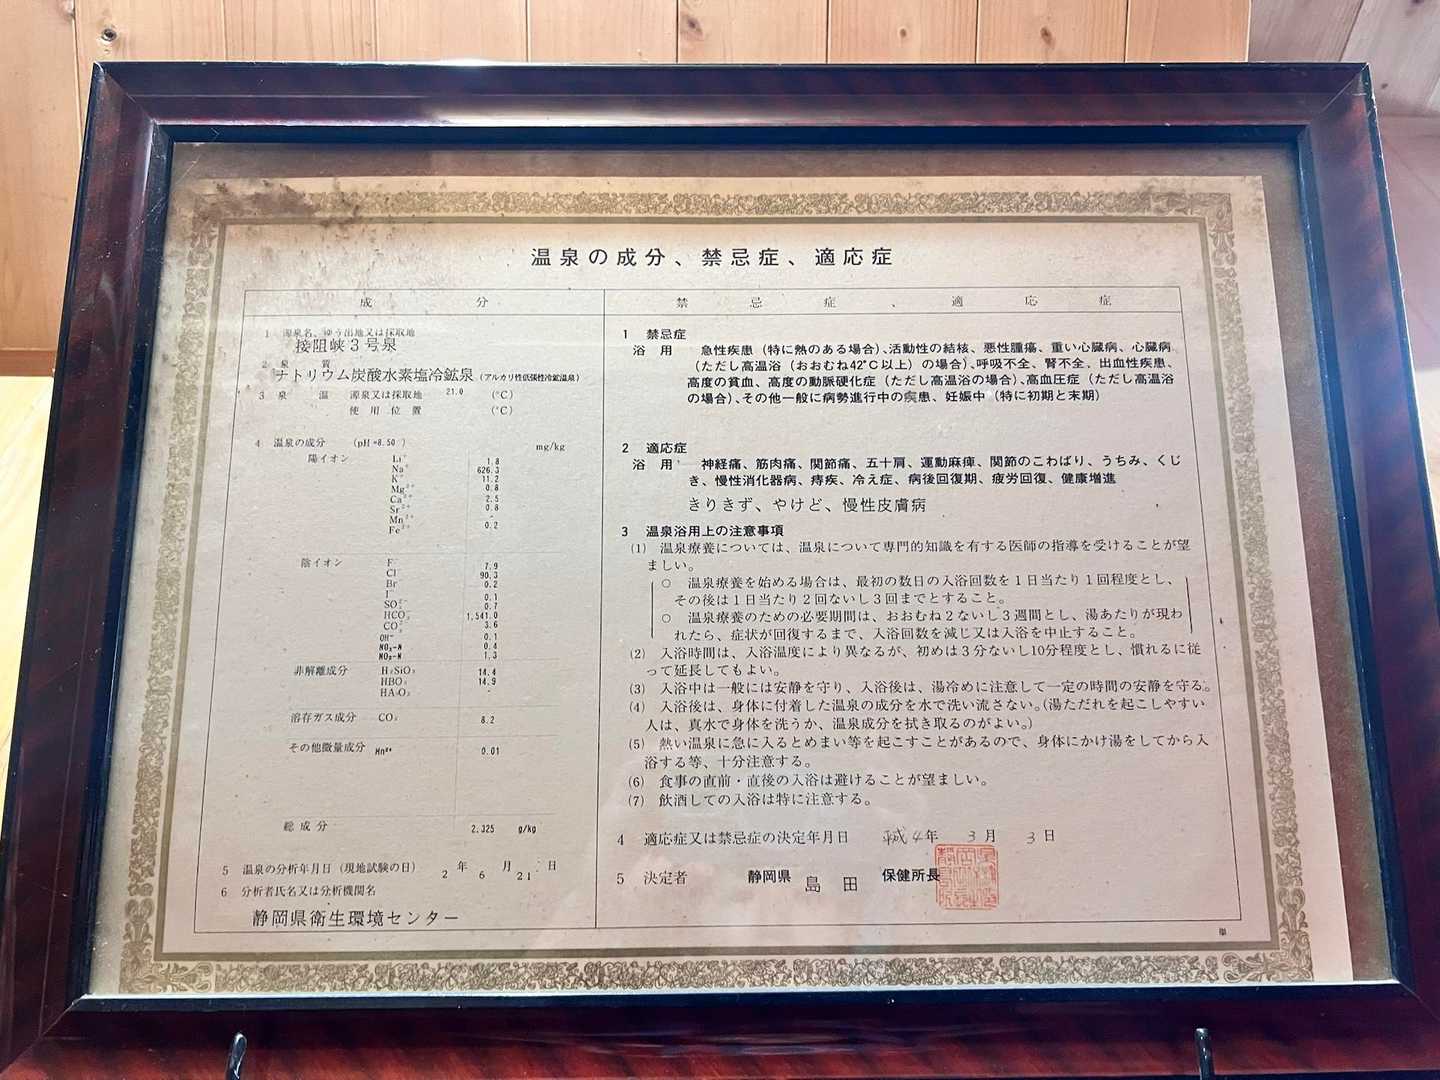 温泉の成分、禁忌症、適応症
成分
1 源泉名、ゆう出地又は採取地
接阻峡3号泉
2 泉質
ナトリウム炭酸水素塩冷鉱泉（アルカリ性低張性冷鉱温泉）
3 泉温 源泉又は採取地 21.0 (℃)
使用位置 (℃)
4 温泉の成分 (pH=8.50) mg/kg
陽イオン Li⁺ 1.8
Na⁺ 626.3
K⁺ 11.2
Mg²⁺ 0.8
Ca²⁺ 2.5
Sr²⁺ 0.8
Mn²⁺ -
Fe²⁺ 0.2
陰イオン F⁻ 7.9
Cl⁻ 90.3
Br⁻ 0.2
I⁻ 0.1
SO₄²⁻ 0.7
HCO₃⁻ 1,541.0
CO₃²⁻ 3.6
OH⁻ 0.1
NO₂-N 0.4
NO₃-N 1.3
非解離成分 H₂SiO₃ 14.4
HBO₂ 14.9
HAsO₂ -
溶存ガス成分 CO₂ 8.2
その他微量成分 Mn²⁺ 0.01
総成分 2.325 g/kg
5 温泉の分析年月日（現地試験の日） 2年6月21日
6 分析者氏名又は分析機関名
静岡県衛生環境センター
禁忌症、適応症
1 禁忌症
浴用 急性疾患（特に熱のある場合）、活動性の結核、悪性腫瘍、重い心臓病、心臓病
（ただし高温浴（おおむね42°C以上）の場合）、呼吸不全、腎不全、出血性疾患、
高度の貧血、高度の動脈硬化症（ただし高温浴の場合）、高血圧症（ただし高温浴
の場合）、その他一般に病勢進行中の疾患、妊娠中（特に初期と末期）
2 適応症
浴用 神経痛、筋肉痛、関節痛、五十肩、運動麻痺、関節のこわばり、うちみ、くじ
き、慢性消化器病、痔疾、冷え症、病後回復期、疲労回復、健康増進
きりきず、やけど、慢性皮膚病
3 温泉浴用上の注意事項
(1) 温泉療養については、温泉について専門的知識を有する医師の指導を受けることが望
ましい。
○ 温泉療養を始める場合は、最初の数日の入浴回数を1日当たり1回程度とし、
その後は1日当たり2回ないし3回までとすること。
○ 温泉療養のための必要期間は、おおむね2ないし3週間とし、湯あたりが現わ
れたら、症状が回復するまで、入浴回数を減じ又は入浴を中止すること。
(2) 入浴時間は、入浴温度により異なるが、初めは3分ないし10分程度とし、慣れるに従
って延長してもよい。
(3) 入浴中は一般には安静を守り、入浴後は、湯冷めに注意して一定の時間の安静を守る。
(4) 入浴後は、身体に付着した温泉の成分を水で洗い流さない。（湯ただれを起こしやすい
人は、真水で身体を洗うか、温泉成分を拭き取るのがよい。）
(5) 熱い温泉に急に入るとめまい等を起こすことがあるので、身体にかけ湯をしてから入
浴する等、十分注意する。
(6) 食事の直前・直後の入浴は避けることが望ましい。
(7) 飲酒しての入浴は特に注意する。
4 適応症又は禁忌症の決定年月日 平成4年3月3日
5 決定者 静岡県島田保健所長